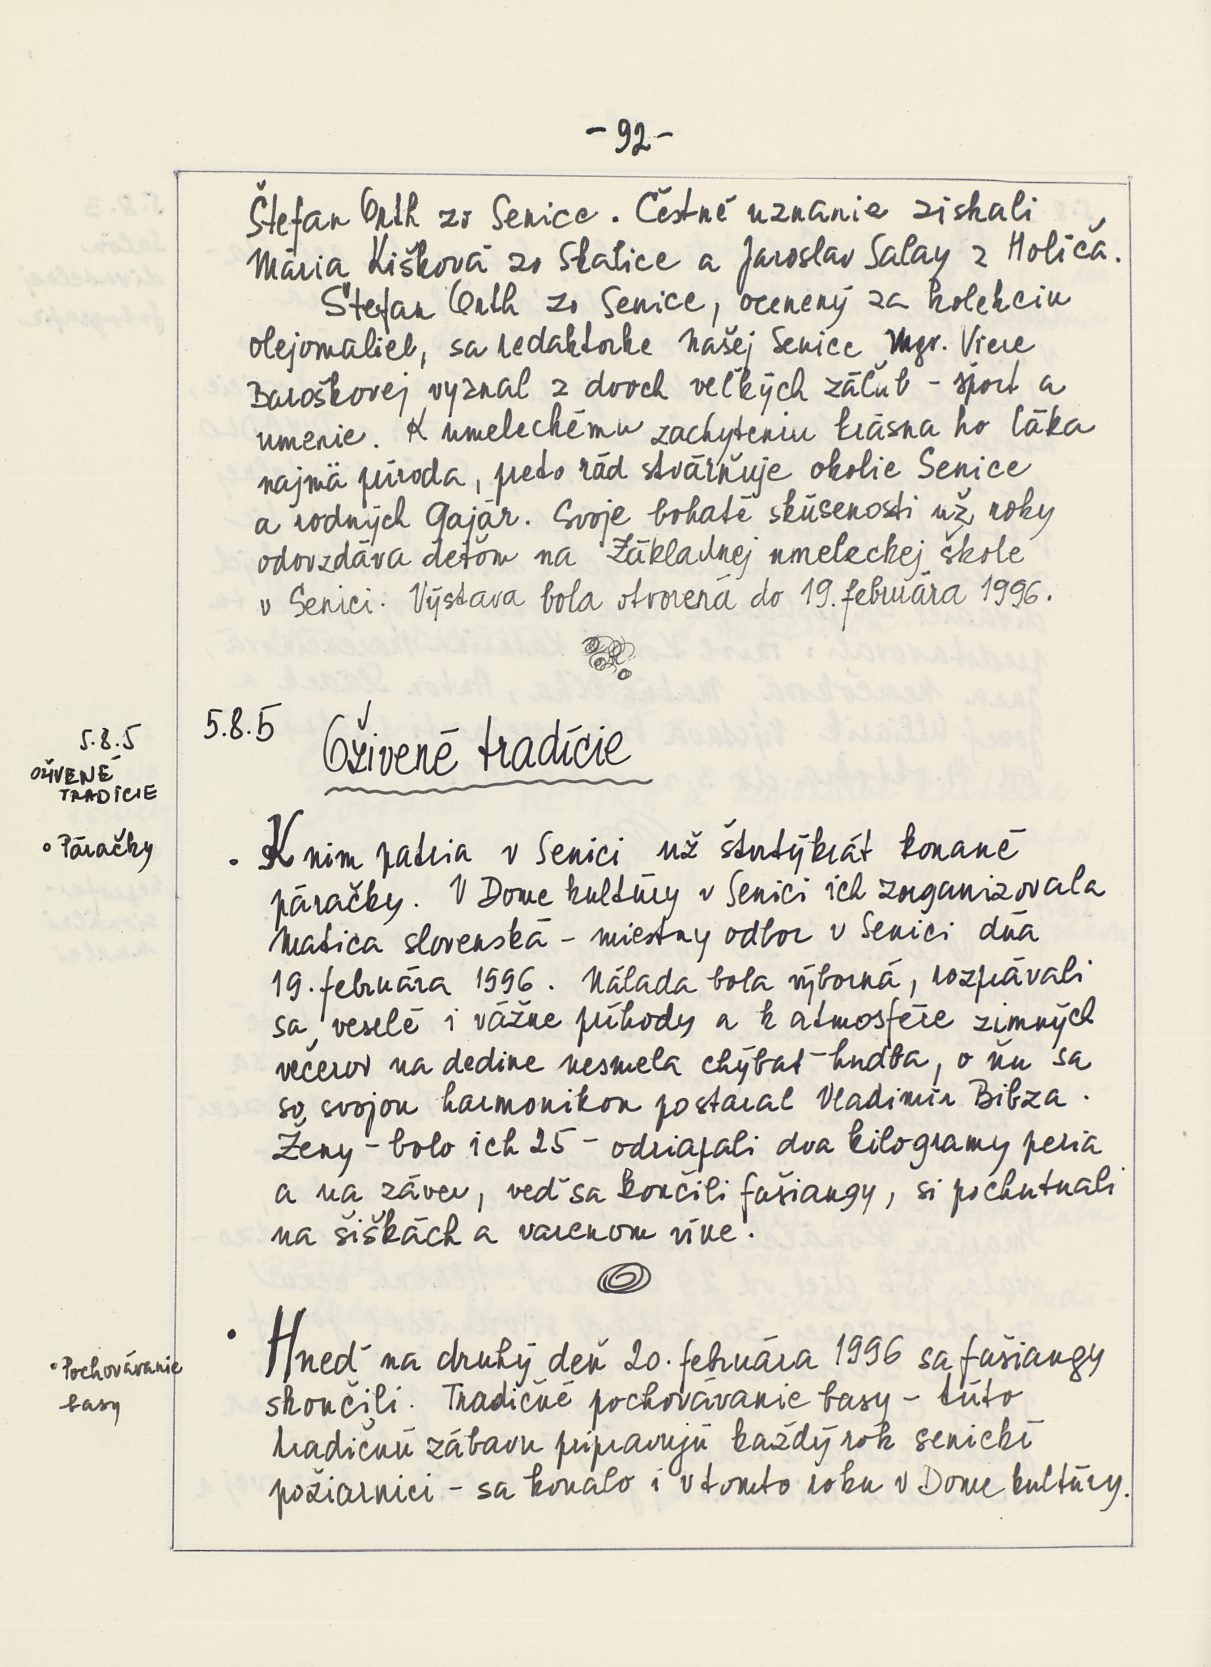 - 92 -
Štefan Orth zo Senice. Čestné uznanie získali
Mária Kišková zo Skalice a Jaroslav Salay z Holíča.
Štefan Orth zo Senice, ocenený za kolekciu
olejomalieb, sa redaktorke Našej Senice Mgr. Viere
Baroškovej vyznal z dvoch veľkých záľub - šport a
umenie. K umeleckému zachyteniu krásna ho láka
najmä príroda, preto rád stvárňuje okolie Senice
a rodných Gajár. Svoje bohaté skúsenosti už roky
odovzdáva deťom na Základnej umeleckej škole
v Senici. Výstava bola otvorená do 19. februára 1996.
5.8.5 Oživené tradície
5.8.5
OŽIVENÉ
TRADÍCIE
• Páračky
• K nim patria v Senici už štvrtýkrát konané
páračky. V Dome kultúry v Senici ich zorganizovala
Matica slovenská - miestny odbor v Senici dňa
19. februára 1996. Nálada bola výborná, rozprávali
sa veselé i vážne príhody a k atmosfére zimných
večerov na dedine nesmela chýbať hudba, o ňu sa
so svojou harmonikou postaral Vladimír Bibza.
Ženy - bolo ich 25 - odriapali dva kilogramy peria
a na záver, veď sa končili fašiangy, si pochutnali
na šiškách a varenom víne.
• Pochovávanie
basy
• Hneď na druhý deň 20. februára 1996 sa fašiangy
skončili. Tradičné pochovávanie basy - túto
tradičnú zábavu pripravujú každý rok senickí
požiarnici - sa konalo i v tomto roku v Dome kultúry.